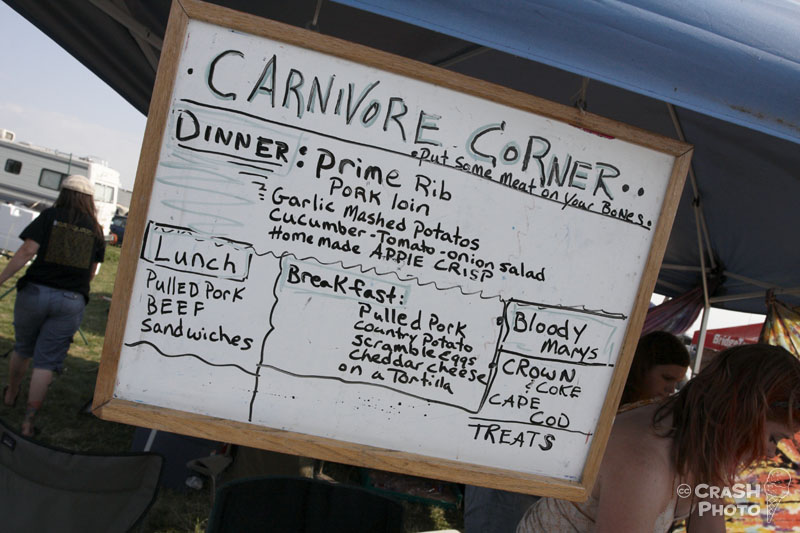 ·CARNIVORE CORNER··
·Put some Meat on your Bones·
DINNER: Prime Rib
PORK loin
Garlic Mashed Potatos
Cucumber-Tomato-onion salad
Homemade APPlE CRISP
Lunch
PUlled PoRK
BEEF
Sandwiches
Breakfast:
Pulled Pork
country Potato
scramble eggs
cheddar cheese
on a Tortilla
Bloody
Marys
CROWN
& COKE
CAPE
COD
TREATS
Bridge
cc CRASH
PHOTO